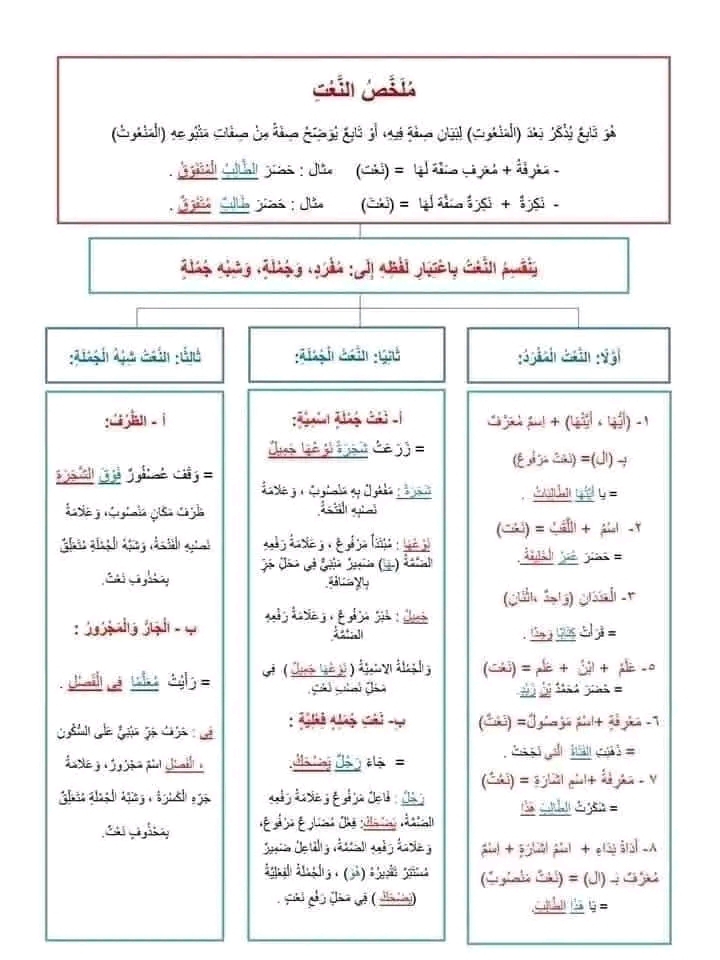 مُلَخَّصُ النَّعْتِ
هُوَ تَابِعٌ يُذْكَرُ بَعْدَ (الْمَنْعُوتِ) لِبَيَانِ صِفَةٍ فِيهِ، أَوْ تَابِعٌ يُوَضِّحُ صِفَةً مِنْ صِفَاتِ مَتْبُوعِهِ (الْمَنْعُوتُ)
- مَعْرِفَةٌ + مُعَرِف صَفَّة لَهَا = (نَعْت) مثال : حَضَرَ الطَّالِبُ الْمُتَفَوِّقُ .
- نَكِرَةٌ + نَكِرَةٌ صَفَّة لَهَا = (نَعْتَ) مثال : حَضَرَ طَالِبٌ مُتَفَوِّقٌ .
يَنْقَسِمُ النَّعْتُ بِاعْتِبَارِ لَفْظِهِ إِلَى: مُفْرَدٍ، وَجُمْلَةٍ، وَشِبْهِ جُمْلَةٍ
أَوَّلًا: النَّعْتُ الْمُفْرَدُ:
١- (أَيُّهَا ، أَيَّتُهَا) + اِسمٌ مُعَرَّفٌ
بِـ (ال)= (نَعْت مَرْفُوعٌ)
= يا أَيَّتُهَا الطَّالِبَاتُ .
٢- اسْمٌ + اللَّقَبُ = (نَعْت)
= حَضَرَ عُمَرُ الْخَلِيفَةُ .
٣- الْعَدَدَانِ (وَاحِدٌ ،اثْنَانِ)
= قَرَأْتُ كِتَابًا وَحِدًا .
٥- عَلَمٌ + ابْنُ + عَلَم = (نَعْت)
= حَضَرَ مُحَمَّدُ بْنُ زَيْدٍ .
٦- مَعْرِفَةٌ +اسْمٌ مَوْصُولٌ= (نَعْتٌ)
= ذَهَبَتِ الْفَتَاةُ الَّتِي نَجَحَتْ .
٧ - مَعْرِفَةٌ +اسْمِ اشَارَةٍ = (نَعْتٌ)
= شَكَرْتُ الطَّالِبَ هَذَا
٨- أَدَاةُ نِدَاءٍ + اسْمُ اشَارَةٍ + اِسْمٌ
مُعَرَّفٌ بَـ (ال) = (نَعْتٌ مَنْصُوبٌ)
= يَا هَذَا الطَّالِبَ.
ثَانِيًا: النَّعْتُ الْجُمْلَةُ:
أ- نَعْتُ جُمْلَةٍ اسْمِيَّةٍ:
= زَرَعْتُ شَجَرَةً نَوْعُهَا جَمِيلٌ
شَجَرَةً : مَفْعُولٌ بِهِ مَنْصُوبٌ ، وَعَلَامَةُ
نَصْبِهِ الْفَتْحَةُ.
نَوْعُهَا : مُبْتَدَأٌ مَرْفُوعٌ ، وَعَلَامَةُ رَفْعِهِ
الضَّمَّةُ (هَا) ضَمِيرٌ مَبْنِيٌّ فِي مَحَلِّ جَرٍّ
بِالإِضَافَةِ.
جَمِيلٌ : خَبَرٌ مَرْفُوعٌ ، وَعَلَامَةُ رَفْعِهِ
الضَّمَّةُ.
وَالْجُمْلَةُ الِاسْمِيَّةُ ( نَوْعُهَا جَمِيلٌ ) فِي
مَحَلِّ نَصْبٍ نَعْتٍ.
ب- نَعْتِ جُمْلِهِ فِعْلِيَّةٍ :
= جَاءَ رَجُلٌ يَضْحَكُ.
رَجُلٌ : فَاعِلٌ مَرْفُوعٌ وَعَلَامَةُ رَفْعِهِ
الضَّمَّةُ، يَضْحَكُ: فِعْلٌ مُضَارِعٌ مَرْفُوعٌ،
وَعَلَامَةُ رَفْعِهِ الضَّمَّةُ، وَالْفَاعِلُ ضَمِيرٌ
مُسْتَتِرٌ تَقْدِيرُهُ (هُوَ) ، وَالْجُمْلَةُ الْفِعْلِيَّةُ
(يَضْحَكُ ) فِي مَحَلِّ رَفْعِ نَعْتٍ .
ثَالِثًا: النَّعْتُ شِبْهُ الْجُمْلَةِ:
أ - الظَّرْفُ:
= وَقَفَ عُصْفُورٌ فَوْقَ الشَّجَرَةِ
ظَرْفُ مَكَانٍ مَنْصُوبٌ، وَعَلَامَةُ
نَصْبِهِ الْفَتْحَةُ، وَشِبْهُ الْجُمْلَةِ مُتَعَلِّقٌ
بِمَحْذُوفٍ نَعْتٌ.
ب - الْجَارُ وَالْمَجْرُورُ :
= رَأَيْتُ مُعَلِّمًا فِي الْفَصْلِ .
فِي : حَرْفُ جَرٍّ مَبْنِيٌّ عَلَى السُّكُونِ
، الْفَصْلِ اسْمٌ مَجْرُورٌ، وَعَلَامَةُ
جَرِّهِ الْكَسْرَةُ ، وَشِبْهُ الْجُمْلَةِ مُتَعَلِّقٌ
بِمَحْذُوفٍ نَعْتٌ.